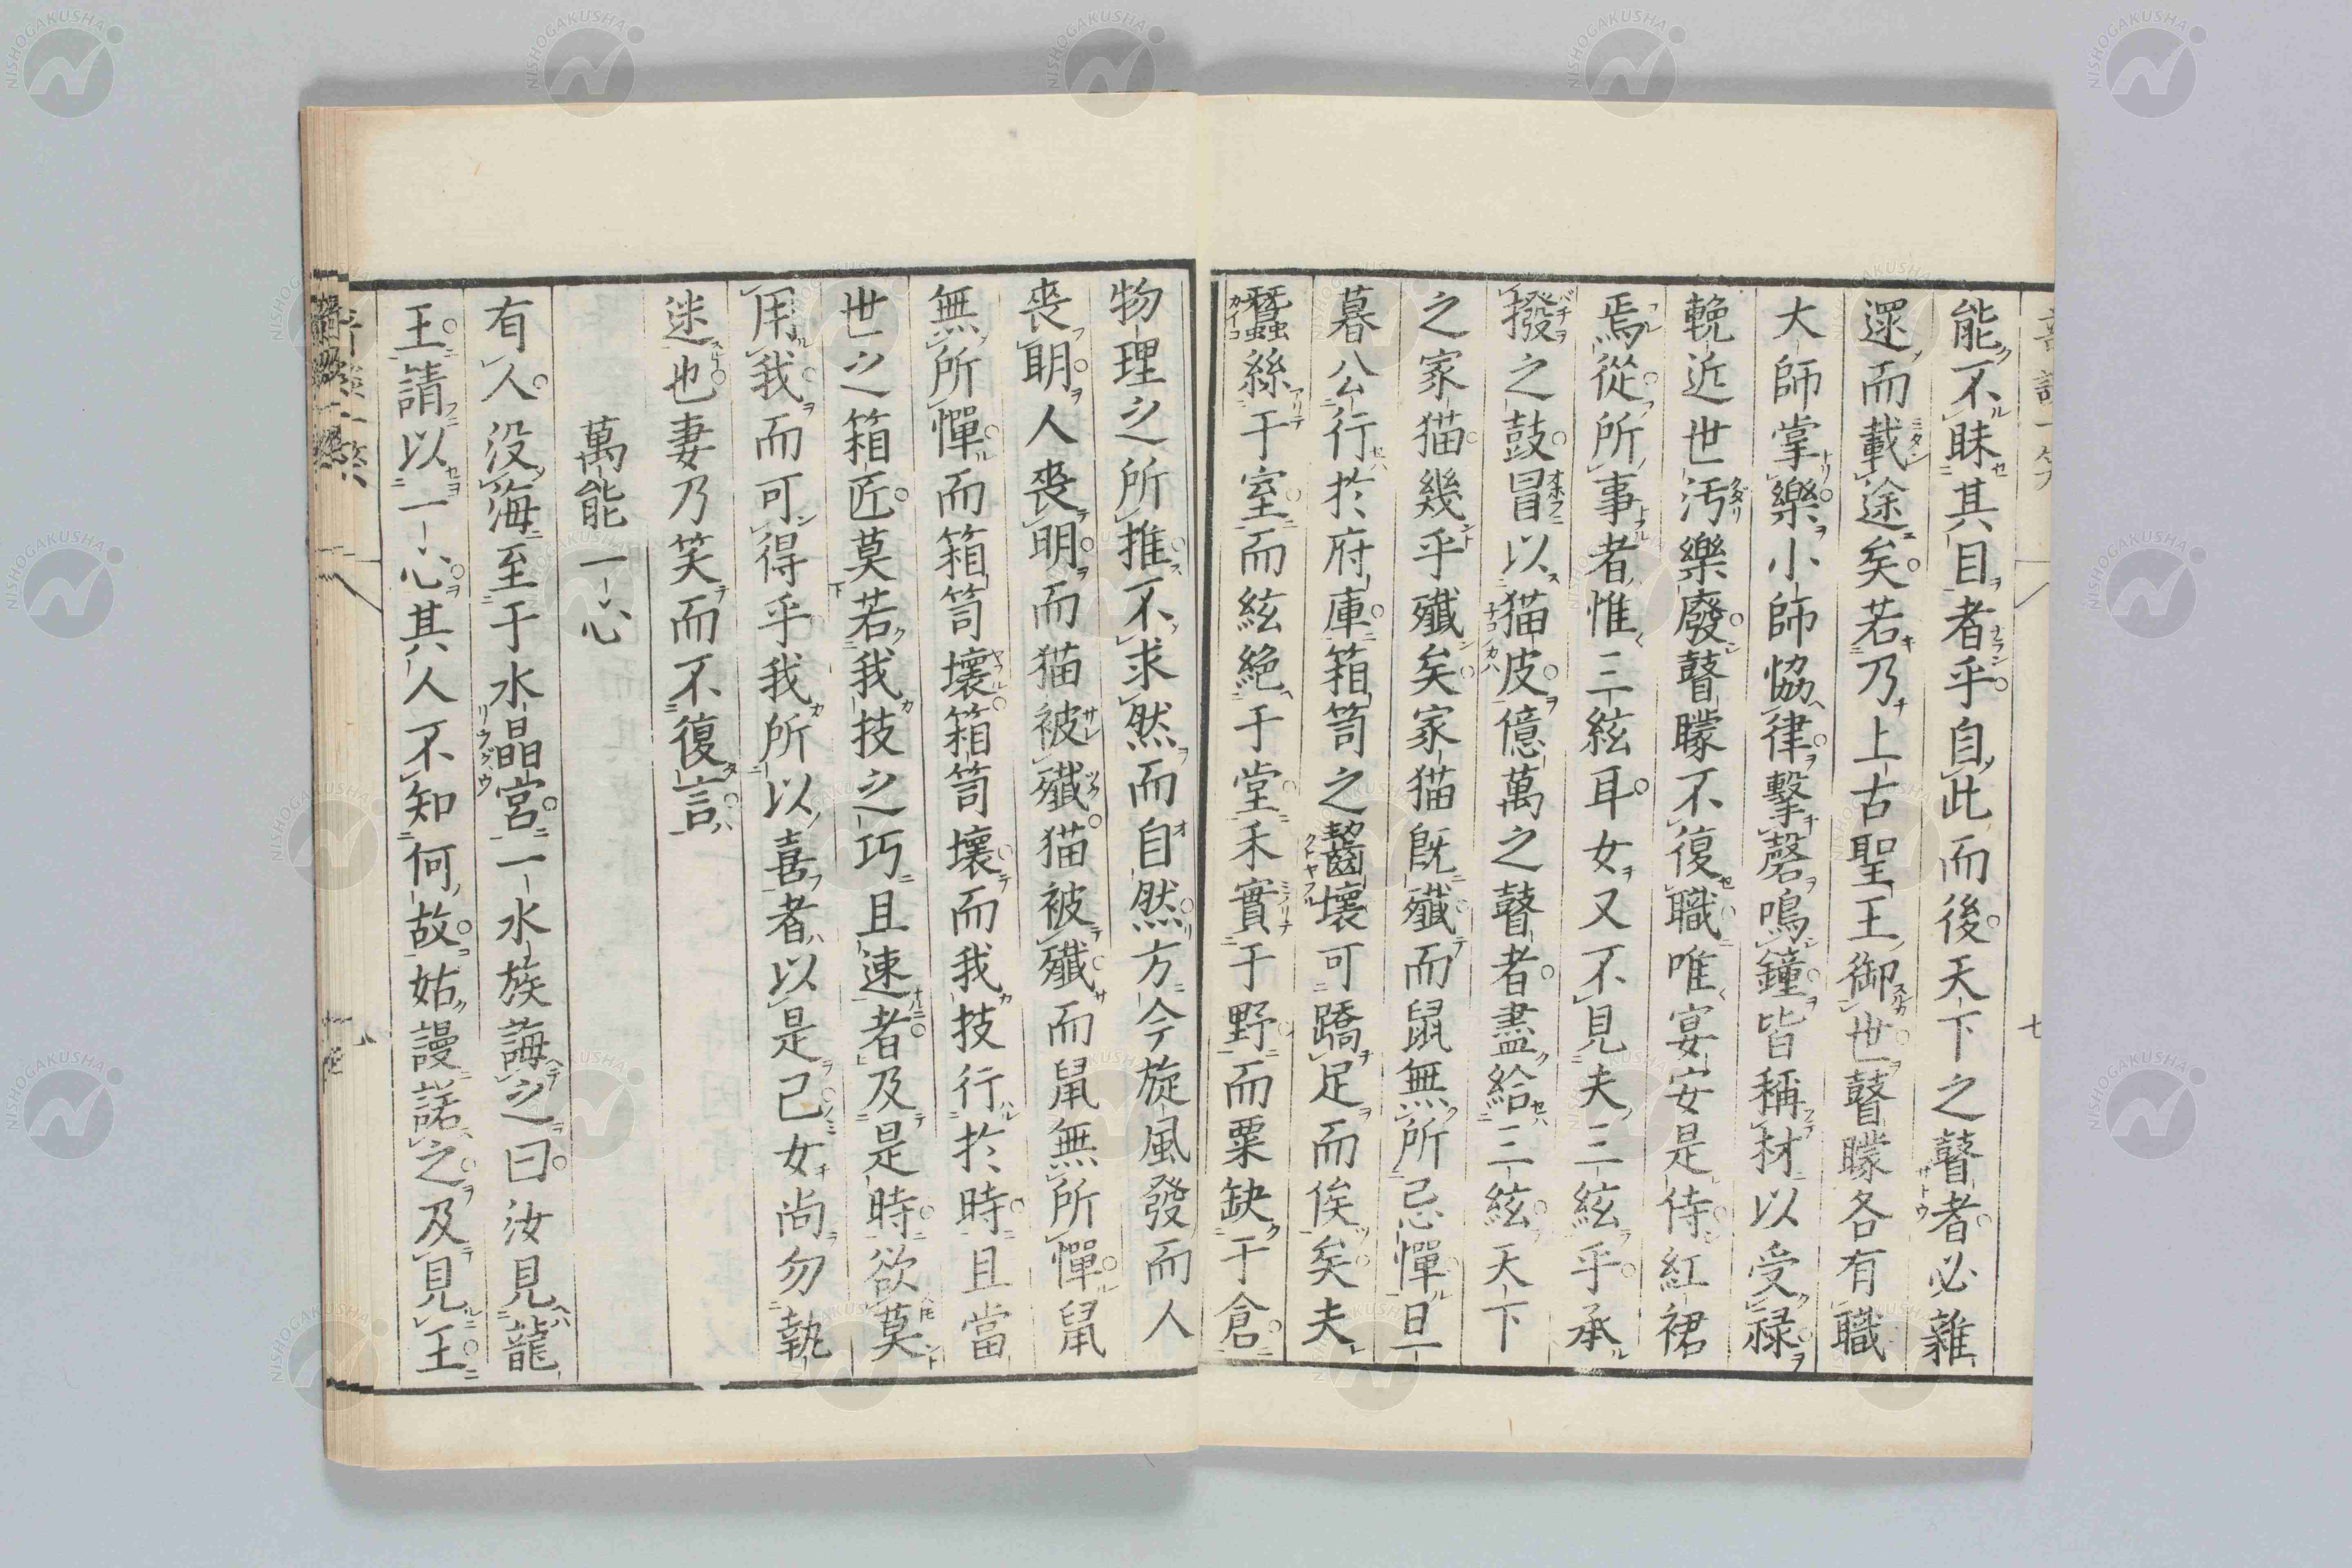 能不眛其目者乎自此而後天下之瞽者必雖
還而載途矣若乃上古聖王御世瞽矇各有職
大師掌樂小師恊律擊磬鳴鐘皆稱材以受祿
輓近世汚樂廢瞽矇不復職唯宴安是侍紅裙
焉從所事者惟三絃耳女又不見夫三絃乎承
撥之鼓冒以猫皮億萬之瞽者盡給三絃天下
之家猫幾乎殱矣家猫既殱而鼠無所忌憚旦
暮公行於府庫箱笥之齧壞可蹻足而俟矣夫
蠶絲于室而絃絶于堂禾實于野而粟缺于倉
物理之所推不求然而自然方今旋風發而人
喪明人喪明而猫被殱猫被殱而鼠無所憚鼠
無所憚而箱笥壞箱笥壞而我技行於時且當
世之箱匠莫若我技之巧且速者及是時欲莫
用我而可得乎我所以喜者以是己女尚勿執
迷也妻乃笑而不復言
萬能一心
有人没海至于水晶宮一水族誨之曰汝見龍
王請以一心其人不知何故姑謾諾之及見王
七
八
NISHOGAKUSHA